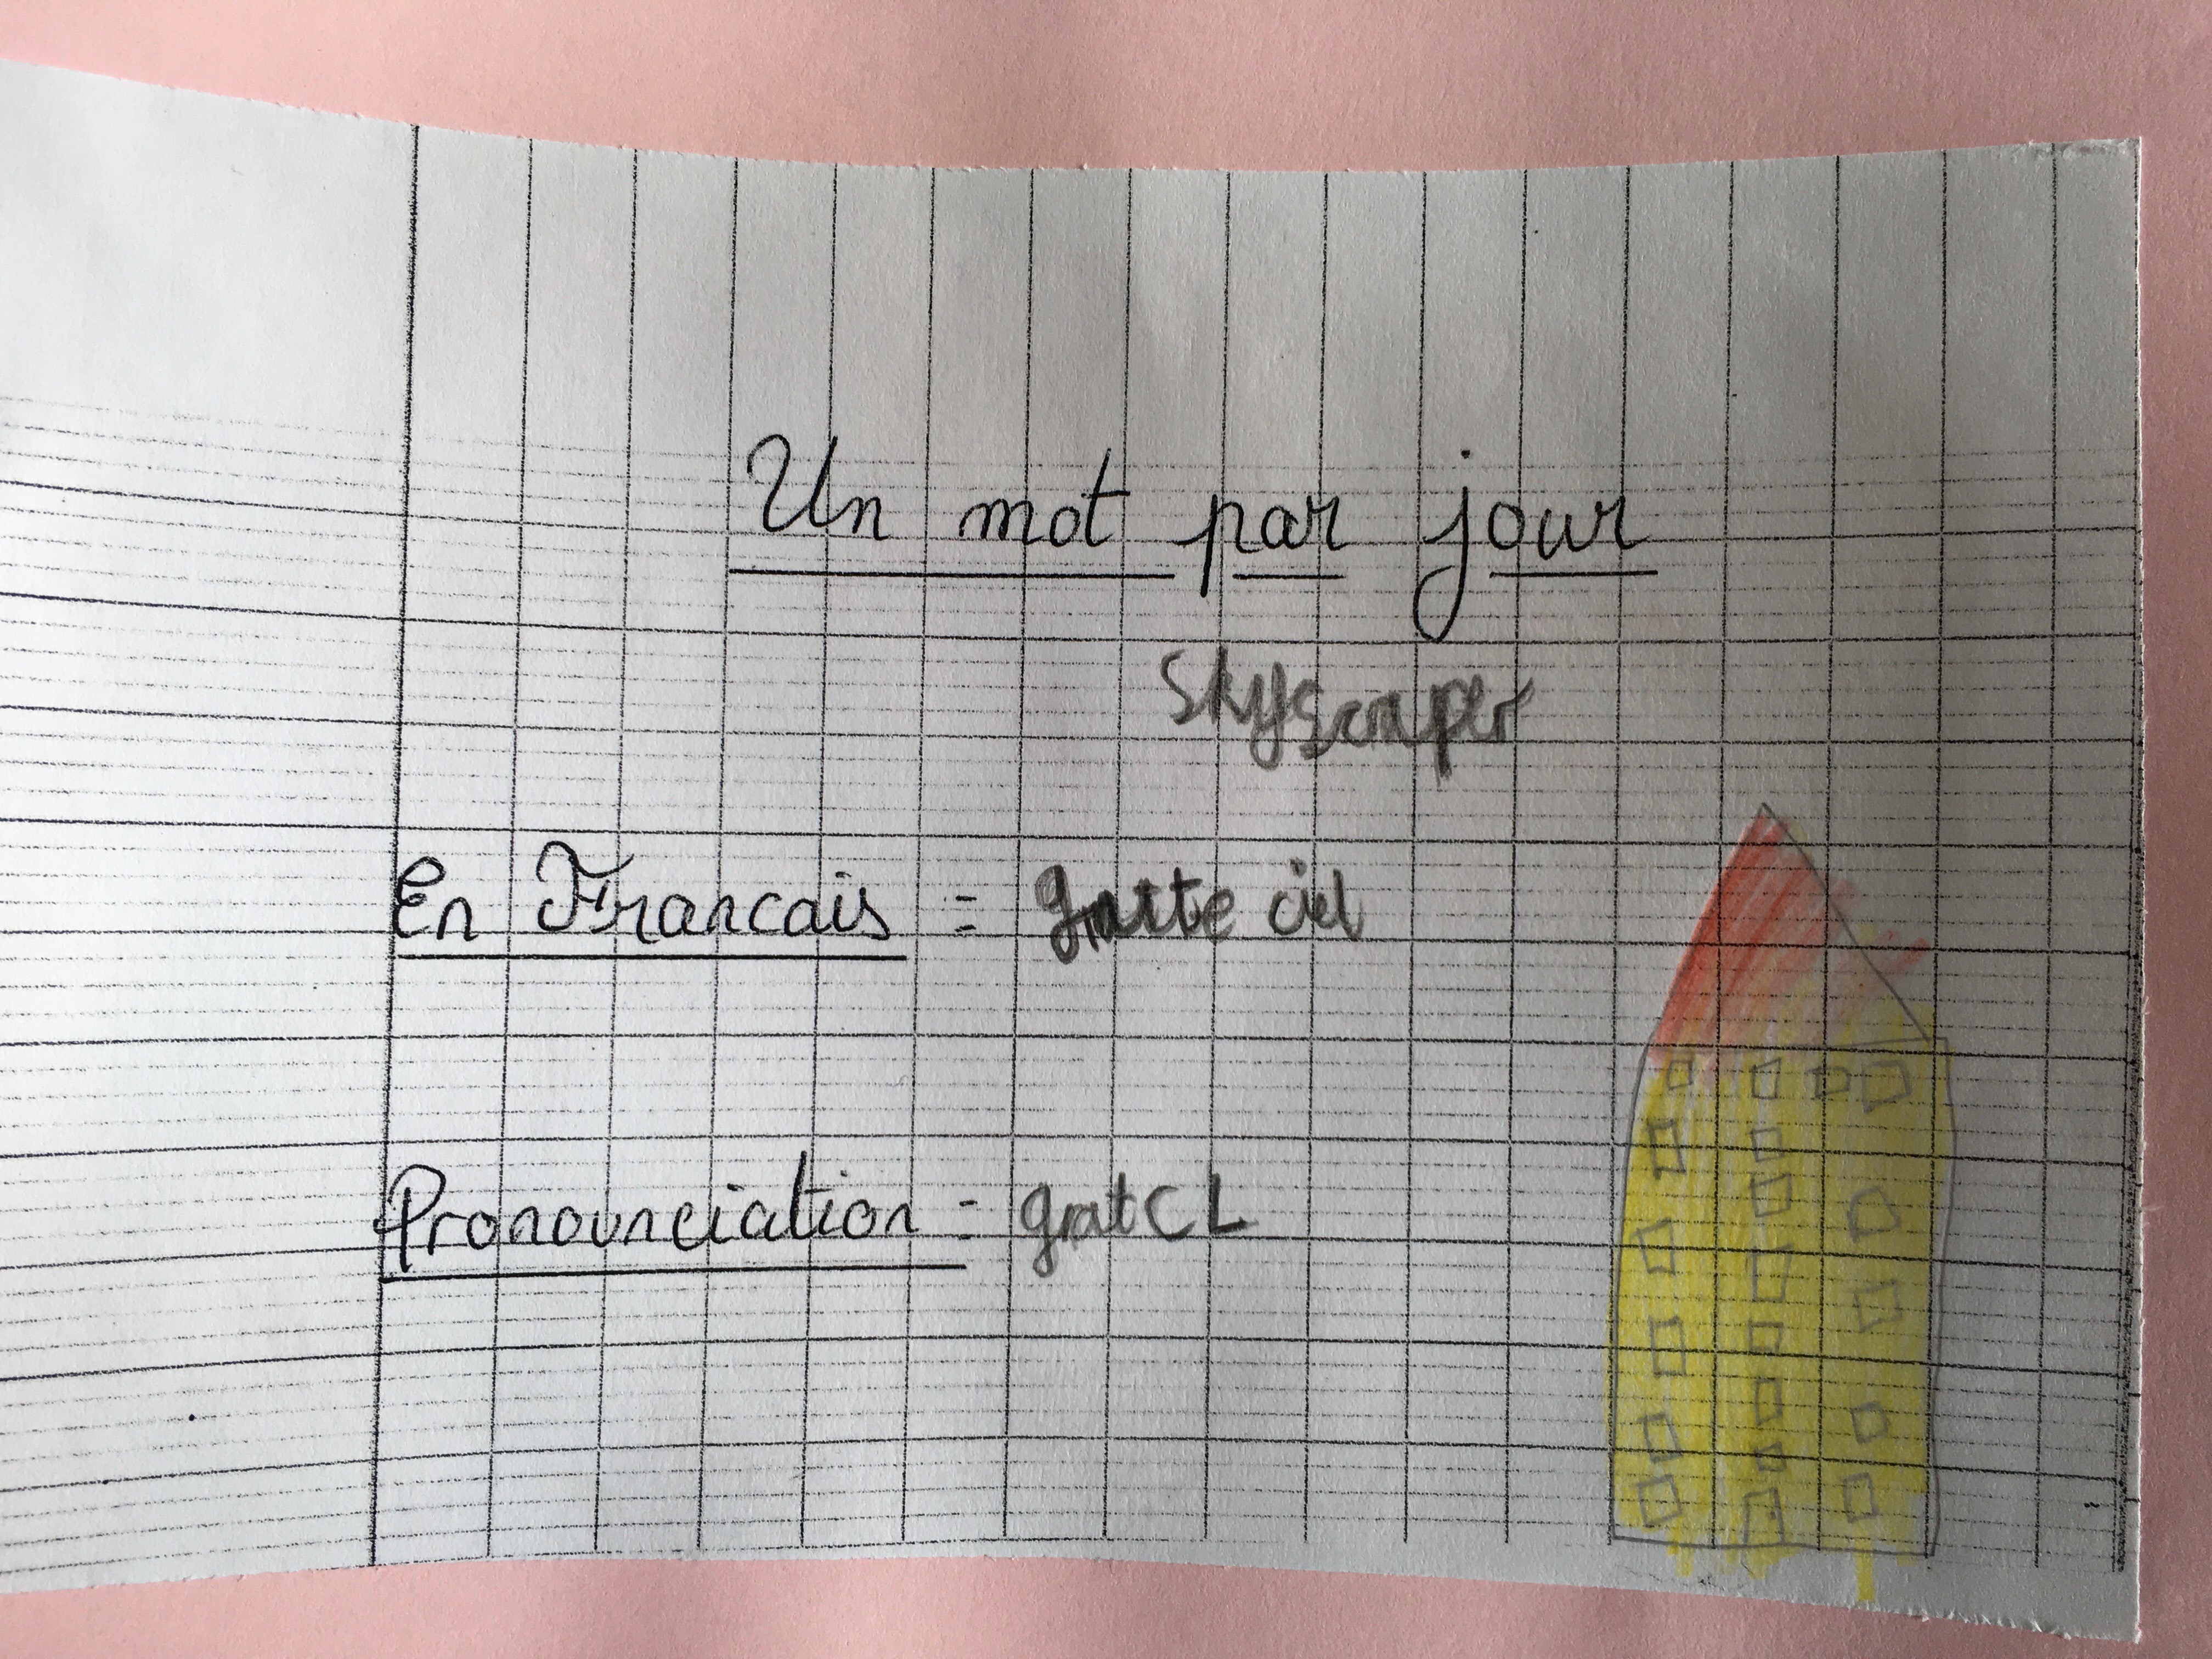 Un mot par jour
Skyscraper
En Francais = gratte ciel
Pronounciation = grat C L